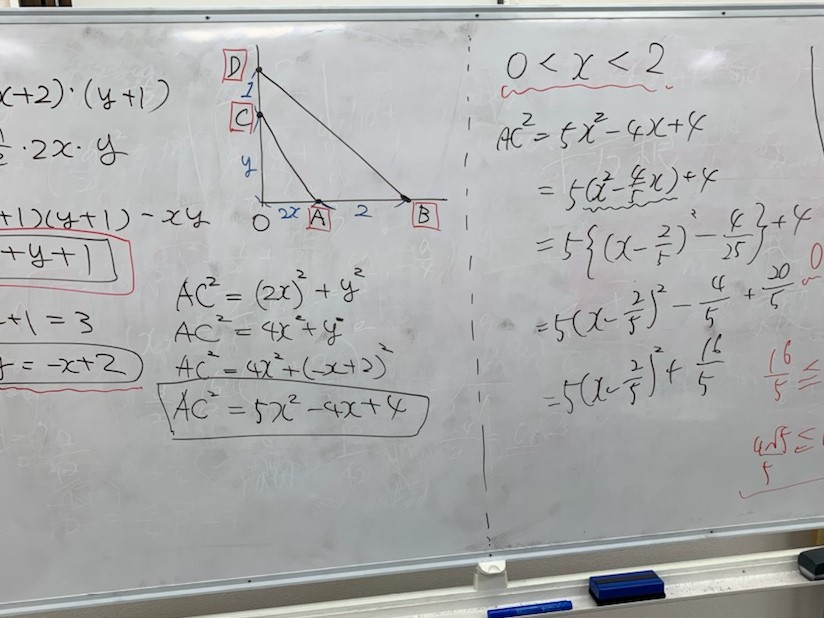 x+2)·(y+1)
1/2·2x·y
+1)(y+1) - xy
+y+1
+1 = 3
y = -x+2
D
1
C
y
O 2x A 2 B
AC² = (2x)² + y²
AC² = 4x² + y²
AC² = 4x² + (-x+2)²
AC² = 5x² - 4x + 4
0 < x < 2
AC² = 5x² - 4x + 4
= 5(x² - 4/5 x) + 4
= 5{(x - 2/5)² - 4/25} + 4
= 5(x - 2/5)² - 4/5 + 20/5
= 5(x - 2/5)² + 16/5
0
16/5 ≤
4√5/5 ≤